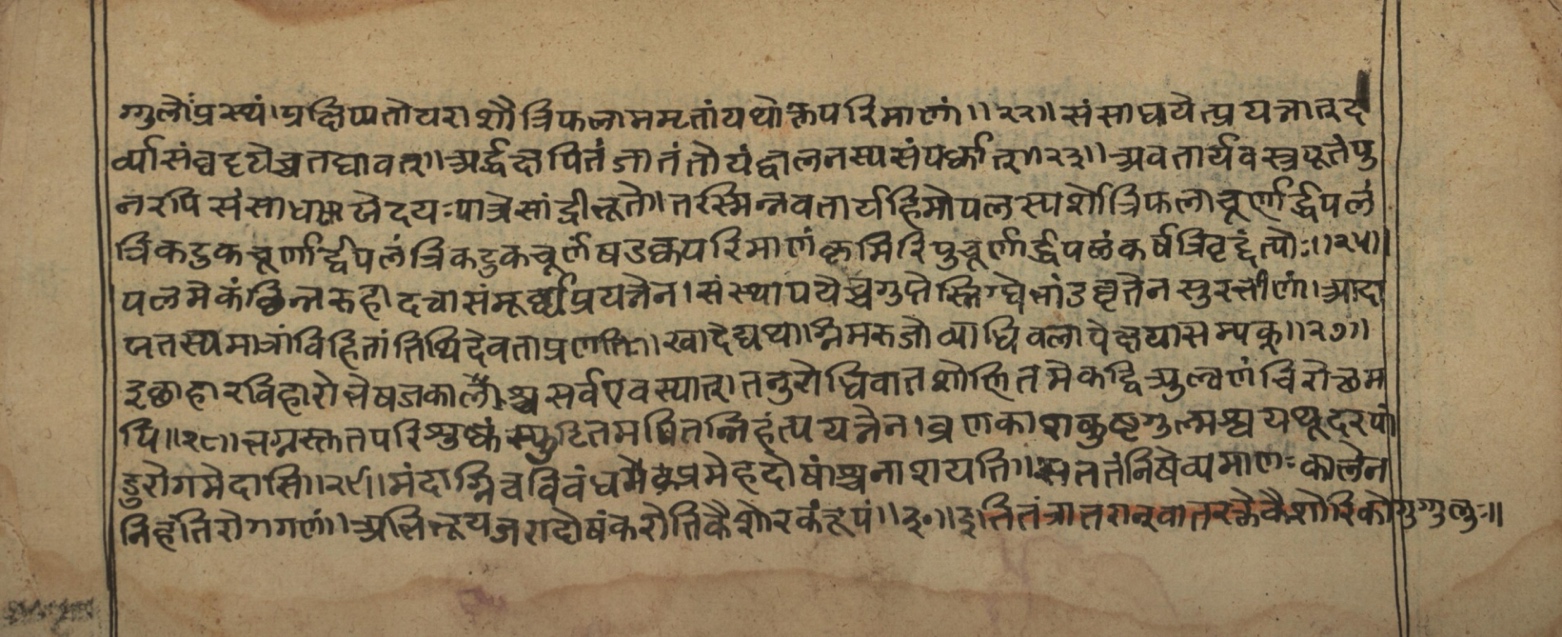 ग्गुलोःप्रस्थं।प्रक्षिप्यतोयराशौत्रिफलाममृतांयथोक्तपरिमाणां॥२२॥संसाधयेत्प्रयत्नात्द
र्व्यासंघट्टयेच्चतद्यावत्॥अर्द्धक्षपितंजातंतोयंज्वलनस्यसंपर्कात्॥२३॥अवतार्यवस्त्रपूतेपु
नरपिसंसाधयेदयःपात्रेसांद्रीभूते।तस्मिन्नवतार्यहिमोपलस्पर्शेत्रिफलाचूर्णार्द्धपलं
त्रिकटुकचूर्णार्द्धपलंत्रिकटुकचूर्णषडक्षपरिमाणंकृमिरिपुचूर्णार्द्धपलंकर्षत्रिवृद्दंत्योः॥२५॥
पलमेकंछिन्नरुहादद्यासंमूर्छ्यप्रयत्नेन।संस्थापयेच्चगुप्तेस्निग्धेभांडेघृतेनसुरभीणां।आदा
यतस्यमात्रांविहितांतिथिदेवताप्रणतिः।खादेद्यथाग्निमरुजोव्याधिबलापेक्षयासम्यक्॥२७॥
इछाहारविहारोभेषजकालैश्चसर्वएवस्यात्।तनुरोधिवातशोणितमेकद्विप्युल्वणंचिरोछम
पि॥२८॥भग्नस्रुतपरिशुष्कंस्फुटितमपितन्निहंत्पयत्नेन।व्रणकाशकुष्ठगुल्मश्वयथूदरपां
डुरोगमेदासि॥२९॥मंदाग्निंचविबंधमेकप्रमेहदोषांश्चनाशयति॥सततंनिषेव्यमाणःकालेन
निहंतिरोगगणं॥अभिभूयजरादोषंकरोतिकैशोरकंरूपं॥३०॥इतितंत्रातरात्वातरक्तेकैशोरिकोगुग्गुलुः॥